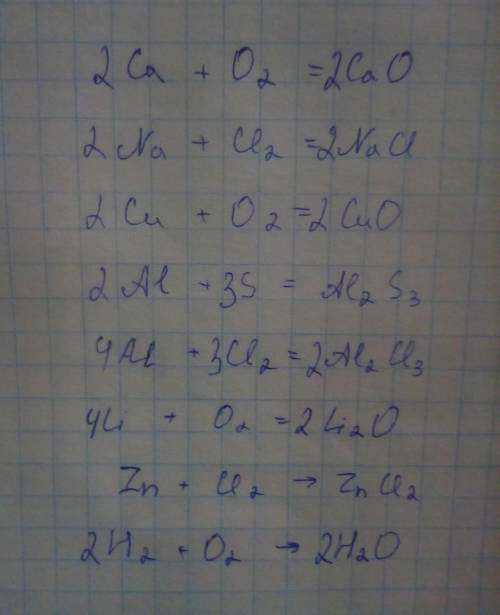 2Ca + O₂ = 2CaO
2Na + Cl₂ = 2NaCl
2Cu + O₂ = 2CuO
2Al + 3S = Al₂S₃
4Al + 3Cl₂ = 2Al₂Cl₃
4Li + O₂ = 2Li₂O
Zn + Cl₂ → ZnCl₂
2H₂ + O₂ → 2H₂O